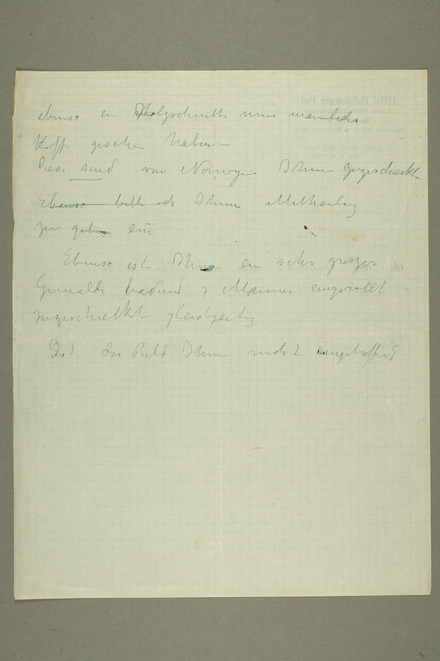 ebenso en Holzschnitt eines männlichen
Kopf gesehen haben
Diese sind von Norwegen Ihnen zugeschickt
Ebenso bitte ich Ihnen Mittheilung
zu geben
Ebenso ist Ihnen ein sehr grosses
Gemälde badend Männer eingerollt
zugeschickt gleichzeitig
Ist das Bild Ihnen nicht